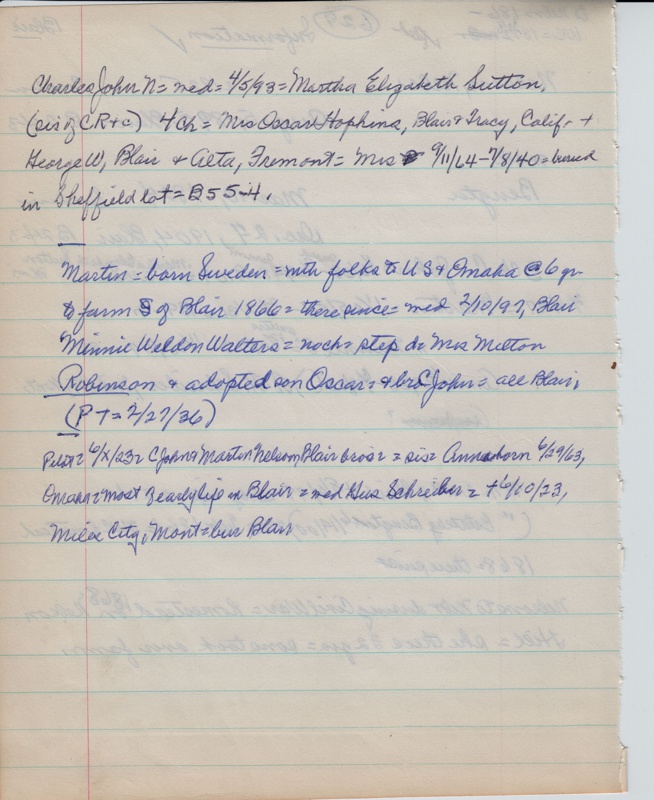 Charles John N = med = 4/5/93 = Martha Elizabeth Sutton,
(sis of CR+C) 4 ch = Mrs Oscar Hopkins, Blair + Tracy, Calif. +
George W, Blair + Alta, Fremont = Mrs 9/11/64 - 7/8/40 = buried
in Sheffield lot = B55-4.
Martin = born Sweden = with folks to US + Omaha @ 6 yr
to farm S of Blair 1866 = there since = med 2/10/97, Blair
Minnie Weldon Walters = noch = step d = Mrs Milton
Robinson + adopted son Oscar = + bro C John = all Blair,
(P + = 2/27/36)
Pilot = 6/X/23 = C John + Martin Nelson, Blair bros = sis = Anna born 6/29/63,
Omaha = most early life in Blair = med Gus Schreiber = + 6/10/23,
Miles City, Mont = bur Blair